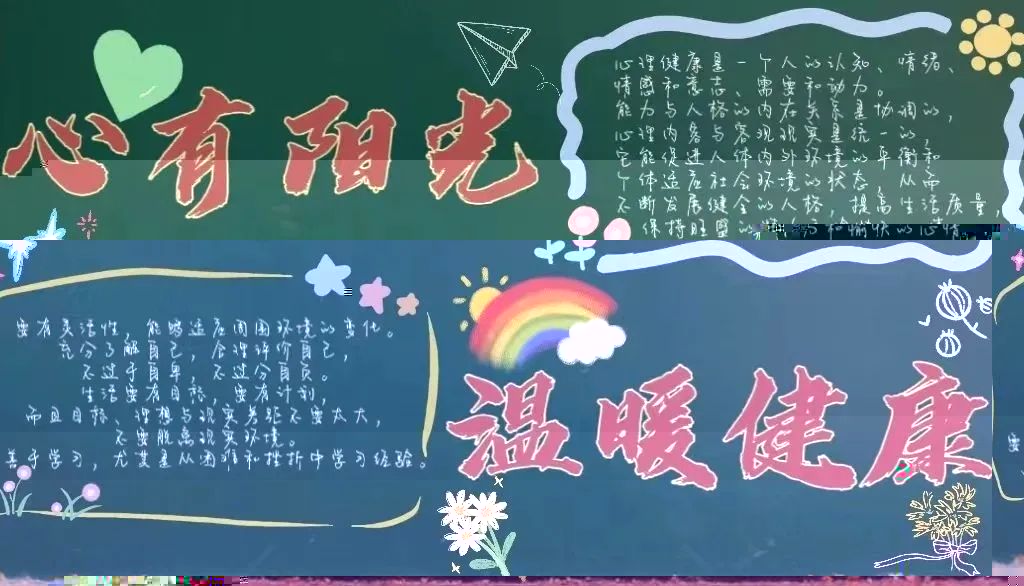 心有阳光
心理健康是一个人的认知、情绪、
情感和意志、需要和动力。
能力与人格的内在关系是协调的，
心理内容与客观现实是统一的，
它能促进人体内外环境的平衡和
个体适应社会环境的状态，从而
不断发展健全的人格，提高生活质量，
保持旺盛的 和愉快的心情
要有灵活性，能够适应周围环境的变化。
充分了解自己，合理评价自己，
不过于自卑，不过分自负。
生活要有目标，要有计划，
而且目标、理想与现实差距不要太大，
不要脱离现实环境。
善于学习，尤其是从困难和挫折中学习经验。
温暖健康
要